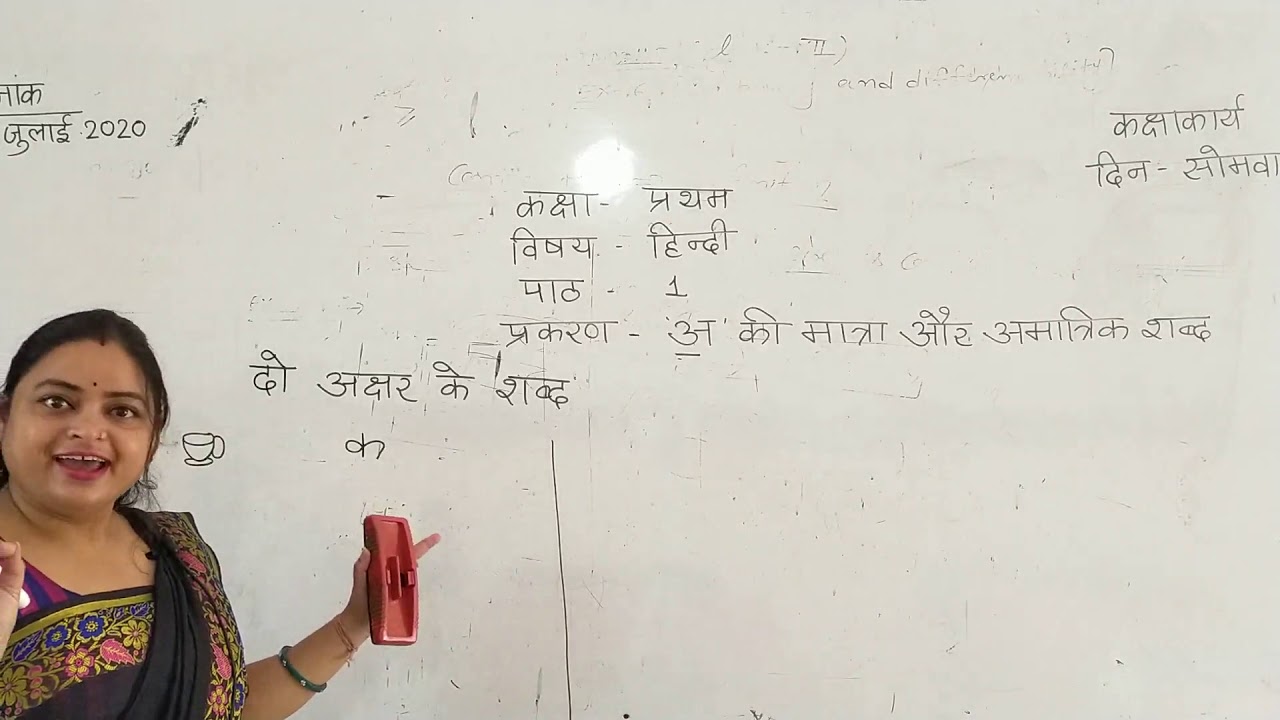 जुलाई 2020
and
कक्षाकार्य
दिन - सोमवा
कक्षा - प्रथम
विषय - हिन्दी
पाठ - 1
प्रकरण - 'अ' की मात्रा और अमात्रिक शब्द
दो अक्षर के शब्द
क